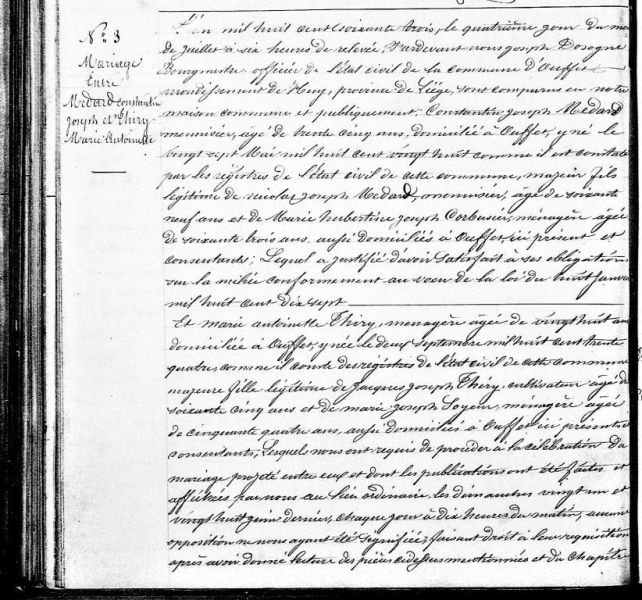 N° 3
Mariage
Entre
Médard Constantin
Joseph et Thiry
Marie Antoinette
L'an mil huit cent soixante trois, le quatrième jour du mois
de Juillet à six heures de relevée, Pardevant nous Joseph Dosogne
Bourgmestre officier de l'état civil de la commune d'Ouffet
arrondissement de Huy, province de Liége, sont comparus en notre
maison commune et publiquement Constantin Joseph Médard
menuisier, âgé de trente cinq ans, domicilié à Ouffet, y né le
vingt sept Mai mil huit cent vingt huit comme il est constaté
par les registres de l'état civil de cette commune, majeur fils
légitime de Nicolas Joseph Médard, menuisier, âgé de soixante
neuf ans et de Marie Hubertine Joseph Corbusier, ménagère âgée
de soixante trois ans, aussi domiciliés à Ouffet, ici présent et
consentants; Lequel a justifié d'avoir satisfait à ses obligations
sur la milice conformement au voeu de la loi du huit Janvier
mil huit cent dix sept
Et marie antoinette Thiry, menagère âgée de vingt huit ans
domiciliée à Ouffet, y née le deux Septembre mil huit cent trente
quatre, comme il conste des registres de l'état civil de cette commune
majeure fille légitime de Jacques Joseph Thiry, cultivateur âgé de
soixante cinq ans et de marie Joseph Soyeur, ménagère âgée
de cinquante quatre ans, aussi domiciliés à Ouffet ici présents
consentants, Lesquels nous ont requis de procéder à la célébration du
mariage projeté entre eux et dont les publications ont été faites et
affichées par nous au lieu ordinaire, les dimanches vingt un et
vingt huit juin dernier, chaque jour à dix heures du matin, aucune
opposition ne nous ayant été signifiée, faisant droit à leur réquisition
après avoir donné lecture des pièces cidessus mentionnées et du chapitre